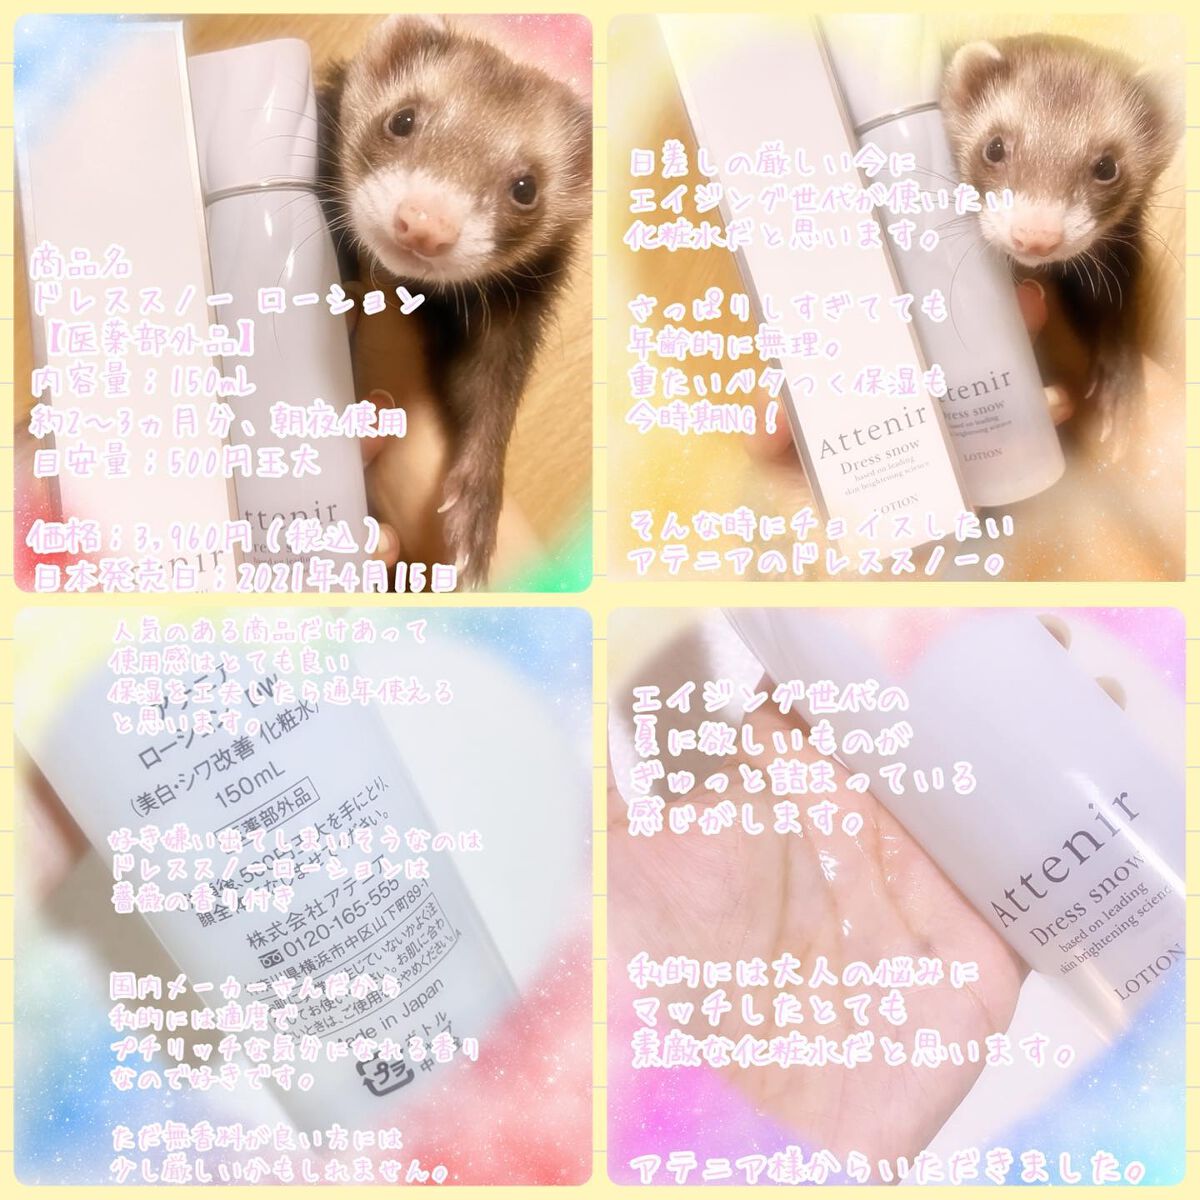 商品名
ドレススノー ローション
【医薬部外品】
内容量；150mL
約2〜3ヵ月分、朝夜使用
目安量；500円玉大
価格；3,960円（税込）
日本発売日；2021年4月15日
ttenir
Dress snow
日差しの厳しい今に
エイジング世代が使いたい
化粧水だと思います。
さっぱりしすぎてても
年齢的に無理。
重たいベタつく保湿も
今時期NG！
そんな時にチョイスしたい
アテニアのドレススノー。
Attenir
Dress snow
based on leading
skin brightening science
LOTION
ttenir
Dress snow
based on leading
brightening science
LOTION
人気のある商品だけあって
使用感はとても良い
保湿を工夫したら通年使える
と思います。
好き嫌い出てしまいそうなのは
ドレススノーローションは
薔薇の香り付き
国内メーカーさんだから
私的には適度で
プチリッチな気分になれる香り
なので好きです。
ただ無香料が良い方には
少し厳しいかもしれません。
アテニア
ローション
(美白・シワ改善 化粧水)
150mL
医薬部外品
株式会社アテニア
0120-165-555
県横浜市中区山下町89-1
Made in Japan
プラ
エイジング世代の
夏に欲しいものが
ぎゅっと詰まっている
感じがします。
私的には大人の悩みに
マッチしたとても
素敵な化粧水だと思います。
アテニア様からいただきました。
Attenir
Dress snow
based on leading
skin brightening scienc
LOTION